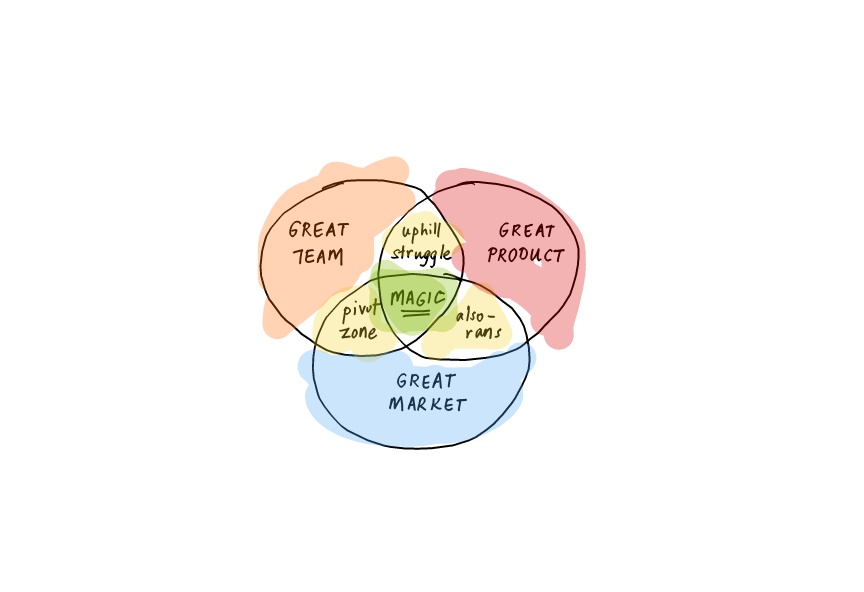 GREAT
TEAM
uphill
struggle
GREAT
PRODUCT
MAGIC
pivot
zone
also-
rans
GREAT
MARKET